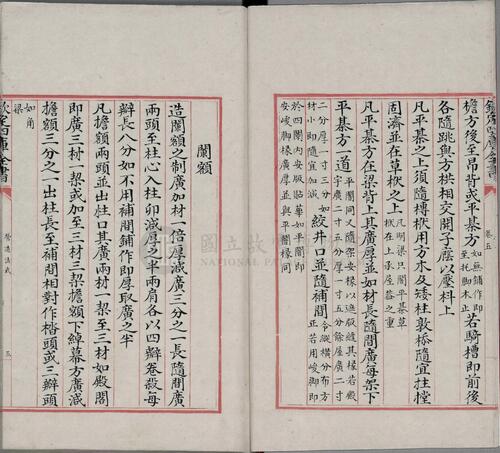 欽定四庫全書
卷五
檐方後至昂背或平棊方如無鋪作即至托腳木止若騎槽即前後
各隨跳與方栱相交開子廕以壓科上
凡平棊之上須隨槫栿用方木及矮柱敦㮇隨宜拄樘
固濟並在草栿之上凡明梁只閣平棊草栿在上承屋蓋之重
凡平棊方在梁背上其廣厚並如材長隨間廣每架下
平棊方一道平闇同又隨架安椽以遮版縫其椽若殿宇廣二寸五分厚一寸五分餘屋廣二寸
二分厚一寸二分如材小即隨宜加減絞井口並隨補間令縱橫分布方正若用峻腳即
於四闌內安版貼華如平闇即安峻腳椽廣厚並與平闇椽同
闌額
造闌額之制廣加材一倍厚減廣三分之一長隨間廣
兩頭至柱心入柱卯減厚之半兩肩各以四瓣卷殺每
瓣長八分如不用補間鋪作即厚取廣之半
凡檐額兩頭並出柱口其廣兩材一栔至三材如殿閣
即廣三材一栔或加至三材三栔檐額下綽幕方廣減
檐額三分之一出柱長至補間相對作楷頭或三瓣頭
如角梁
欽定四庫全書
營造法式
五
國立故宮
NATIONAL PALACE